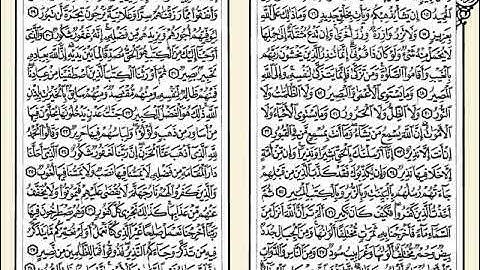 الحميد ١٥ إن يشأ يذهبكم ويأت بخلق جديد ١٦ وما ذلك على الله
بعزيز ١٧ ولا تزر وازرة وزر أخرى وإن تدع مثقلة إلى حملها
لا يحمل منه شيء ولو كان ذا قربى إنما تنذر الذين يخشون ربهم
بالغيب وأقاموا الصلاة ومن تزكى فإنما يتزكى لنفسه وإلى الله
المصير ١٨ وما يستوي الأعمى والبصير ١٩ ولا الظلمات ولا
النور ٢٠ ولا الظل ولا الحرور ٢١ وما يستوي الأحياء ولا
الأموات إن الله يسمع من يشاء وما أنت بمسمع من في القبور ٢٢
إن أنت إلا نذير ٢٣ إنا أرسلناك بالحق بشيرا ونذيرا وإن من أمة
إلا خلا فيها نذير ٢٤ وإن يكذبوك فقد كذب الذين من قبلهم
جاءتهم رسلهم بالبينات وبالزبر وبالكتاب المنير ٢٥ ثم
أخذت الذين كفروا فكيف كان نكير ٢٦ ألم تر أن الله أنزل من
السماء ماء فأخرجنا به ثمرات مختلفا ألوانها ومن الجبال جدد
بيض وحمر مختلف ألوانها وغرابيب سود ٢٧ ومن الناس والدواب
وأنفقوا مما رزقناهم سرا وعلانية يرجون تجارة لن تبور ٢٩
ليوفيهم أجورهم ويزيدهم من فضله إنه غفور شكور ٣٠
والذي أوحينا إليك من الكتاب هو الحق مصدقا لما بين يديه إن الله بعباده
لخبير بصير ٣١ ثم أورثنا الكتاب الذين اصطفينا من عبادنا
فمنهم ظالم لنفسه ومنهم مقتصد ومنهم سابق بالخيرات بإذن
الله ذلك هو الفضل الكبير ٣٢ جنات عدن يدخلونها يحلون فيها
من أساور من ذهب ولؤلؤا ولباسهم فيها حرير ٣٣ وقالوا الحمد
لله الذي أذهب عنا الحزن إن ربنا لغفور شكور ٣٤ الذي أحلنا
دار المقامة من فضله لا يمسنا فيها نصب ولا يمسنا فيها لغوب ٣٥
والذين كفروا لهم نار جهنم لا يقضى عليهم فيموتوا ولا يخفف
عنهم من عذابها كذلك نجزي كل كفور ٣٦ وهم يصطرخون فيها
فيه من تذكر وجاءكم النذير فذوقوا فما للظالمين من نصير ٣٧